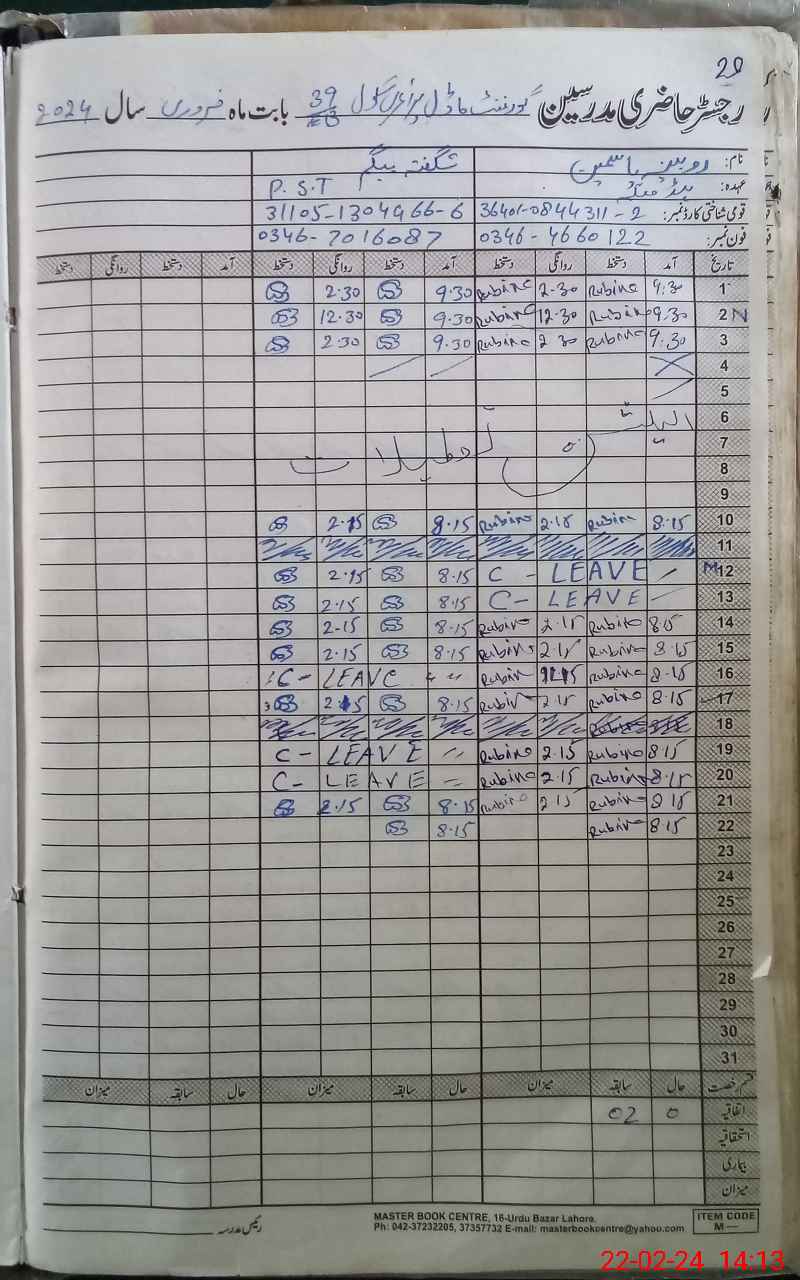 29
رجسٹر حاضری مدرسین گورنمنٹ ماڈل پرائمری سکول 39 بابت ماہ فروری سال 2024
نام: روبینہ یاسمین شگفتہ بیگم
عہدہ: ہیڈ P.S.T
قومی شناختی کارڈ نمبر: 36401-0844311-2 31105-1304966-6
فون نمبر: 0346-4660122 0346-7016087
تاریخ آمد دستخط روانگی دستخط آمد دستخط روانگی دستخط آمد دستخط روانگی دستخط
1 9.30 Rubina 2.30 Rubina 9.30 2.30
2 N 9.30 Rubina 12.30 Rubina 9.30 12.30
3 9.30 Rubina 2 30 Rubina 9.30 2.30
4
5
6 الیکشن
7 تعطیلات
8
9
10 8.15 Rubina 2.15 Rubina 8.15 2.15
11
M 12 C - LEAVE 8.15 2.15
13 C - LEAVE 8.15 2.15
14 8.15 Rubina 2.15 Rubina 8.15 2-15
15 8.15 Rubina 2.15 Rubina 8.15 2.15
16 8.15 Rubina Rubin C - LEAVE
17 8.15 Rubina 2.15 Rubina 8.15 2.15
18
19 8 15 Rubina 2.15 Rubina C - LEAVE
20 8.15 Rubina 2.15 Rubina C - LEAVE
21 8 15 Rubina 2.15 Rubina 8.15 2.15
22 8 15 Rubina 8.15
23
24
25
26
27
28
29
30
31
قسم رخصت حال سابقہ میزان حال سابقہ میزان حال سابقہ میزان
اتفاقیہ 0 02
استحقاقیہ
بیماری
میزان
رئیس مدرسہ
MASTER BOOK CENTRE, 16-Urdu Bazar Lahore.
Ph: 042-37232205, 37357732 E-mail: masterbookcentre@yahoo.com
ITEM CODE
M—
22-02-24 14:13